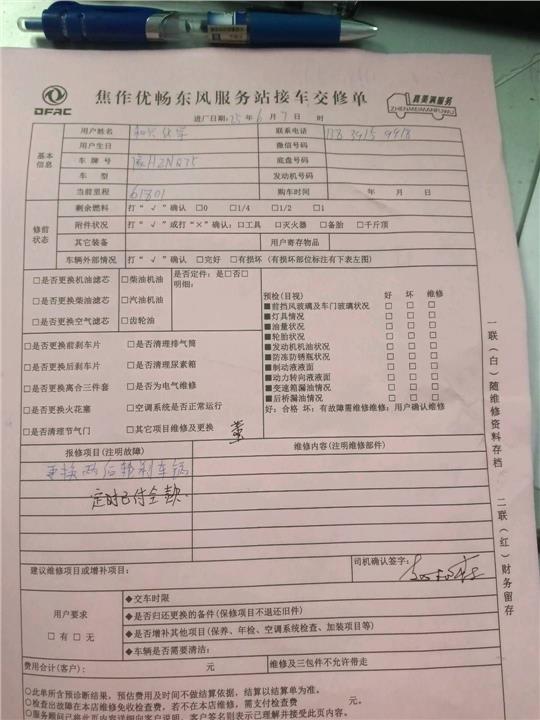 DFAC
焦作优畅东风服务站接车交修单
真美满服务
ZHENMEIMANFUWU
进厂日期:25年6月7日 时
基本信息
用户姓名 和兴化学 联系电话 138 3915 9918
用户生日 微信号码
车牌号 豫H2NQ75 底盘号码
车型 发动机号码
当前里程 61801 购车时间 年 月 日
修前状态
剩余燃料 打“√”确认 □0 □1/4 □1/2 □1
附件状况 打“√”或打“×”确认:□工具 □灭火器 □备胎 □千斤顶
其它装备 用户寄存物品
车辆外部情况 打“√”确认 □完好 □有损坏(有损坏部位标注有下表左图)
□是否更换机油滤芯 □柴油机油 是否定件:是□否□
□是否更换柴油滤芯 □汽油机油 明细:
□是否更换空气滤芯 □齿轮油
□是否更换前刹车片 □是否清理排气筒
□是否更换后刹车片 □是否清理尿素箱
□是否更换离合三件套 □是否为电气维修
□是否更换火花塞 □空调系统是否正常运行
□是否清理节气门 □其它项目维修及更换 董
预检(目视) 好 坏 维修
■前挡风玻璃及车门玻璃状况 □ □ □
■灯具情况 □ □ □
■油量状况 □ □ □
■轮胎状况 □ □ □
■发动机机油状况 □ □ □
■防冻防锈瓶状况 □ □ □
■制动液液面 □ □ □
■动力转向液液面 □ □ □
■变速箱漏油情况 □ □ □
■后桥漏油情况 □ □ □
好:合格 坏:有故障需维修维修:用户确认维修
报修项目(注明故障) 维修内容(注明维修部件)
更换两后轮刹车锅
定时已付全款.
建议维修项目或增补项目: 司机确认签字:
用户要求
□有 □无
◆交车时限
◆是否归还更换的备件(保修项目不退还旧件)
◆是否增补其他项目(保养、年检、空调系统检查、加装项目等)
◆车辆是否需要清洁:
费用合计(客户): 元 维修及三包件不允许带走
○此单所含预诊断结果,预估费用及时间不做结算依据,结算以结算单为准。
○检查出故障在本店维修免收检查费,若不在本店维修,需支付检查费 元。
○服务顾问已将此页内容详细向客户说明,客户签名则表示已理解并接受此页内容。
一联(白)随维修资料存档
二联(红)财务留存